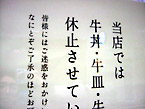 当店では
牛丼・牛皿・牛
休止させてい
皆様にはご迷惑をおかけ
なにとぞご了承のほどお